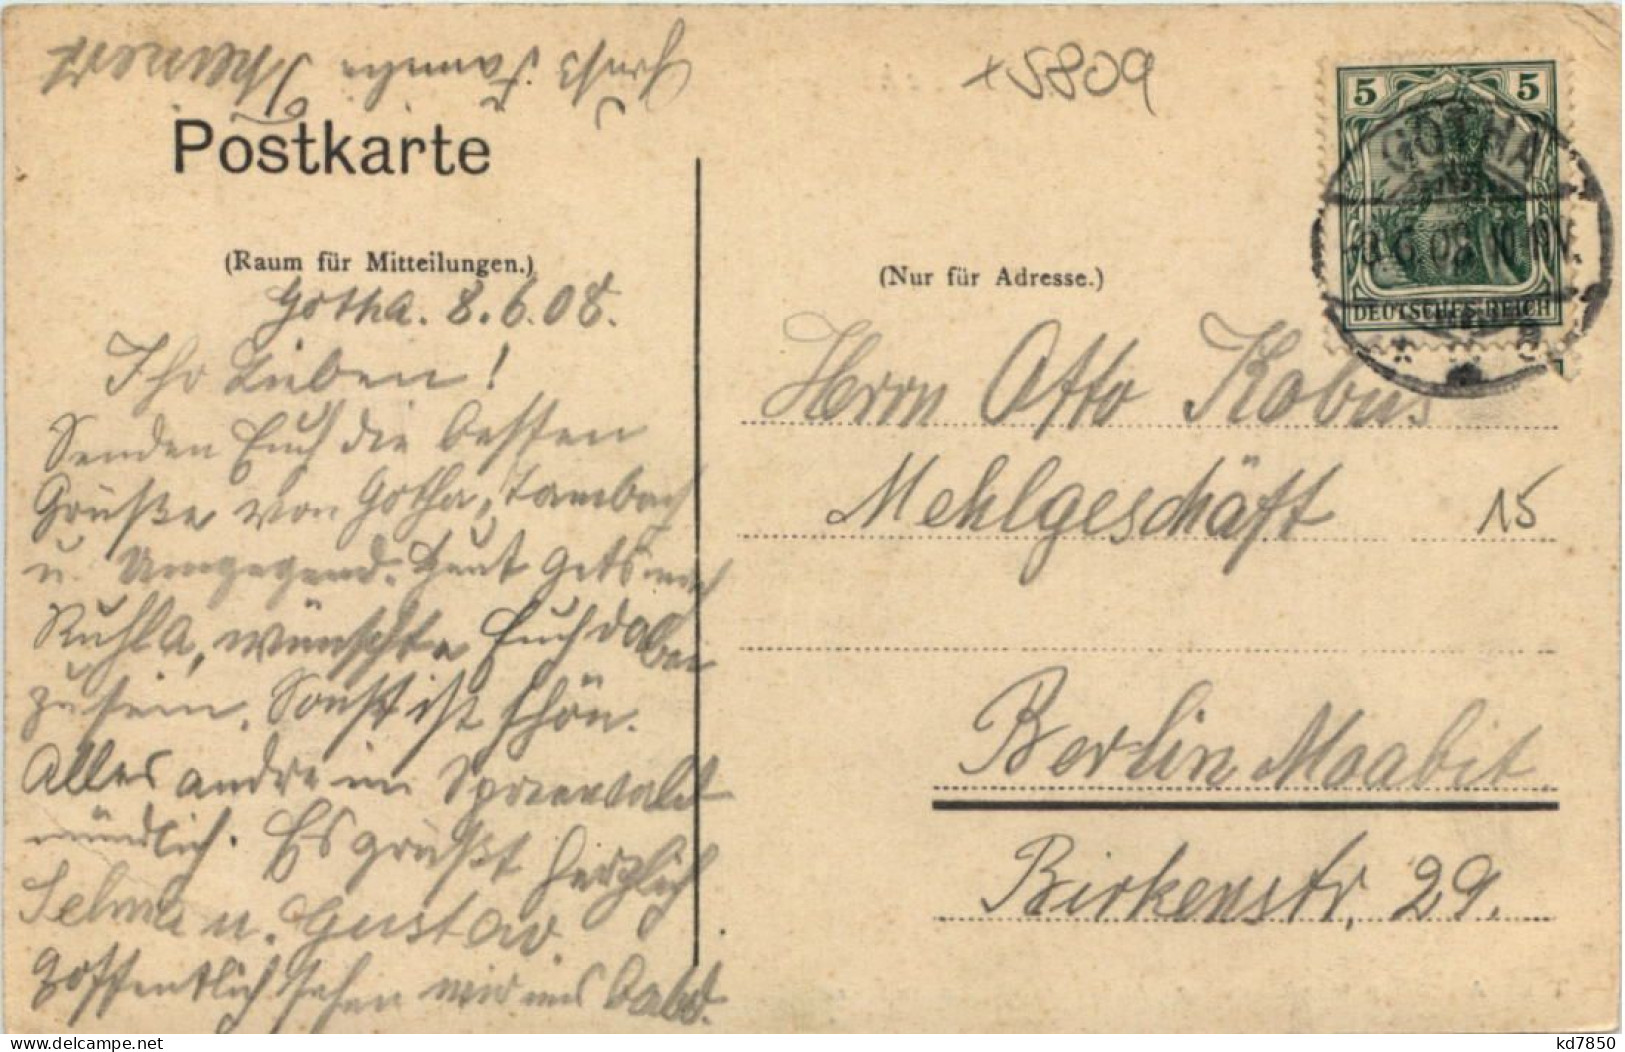 Gruß Familie
x5809
5 5
GOTHA
8.6.08.10-11V.
DEUTSCHES REICH
Postkarte
(Raum für Mitteilungen.)
(Nur für Adresse.)
Gotha. 8.6.08.
Ihr Lieben!
Senden Euch die besten
Grüße von Gotha, Tambach
u. Umgegend. Heut gets nach
Ruhla, wünschte Euch dabei
zu sein. Sonst ist schön.
Alles andre im Spreewald
mündlich. Es grüßt herzlich
Selma u. Gustav.
Hoffentlich sehen wir uns bald.
Herrn Otto Kobus
Mehlgeschäft
15
Berlin Moabit.
Birkenstr. 29.
kd7850